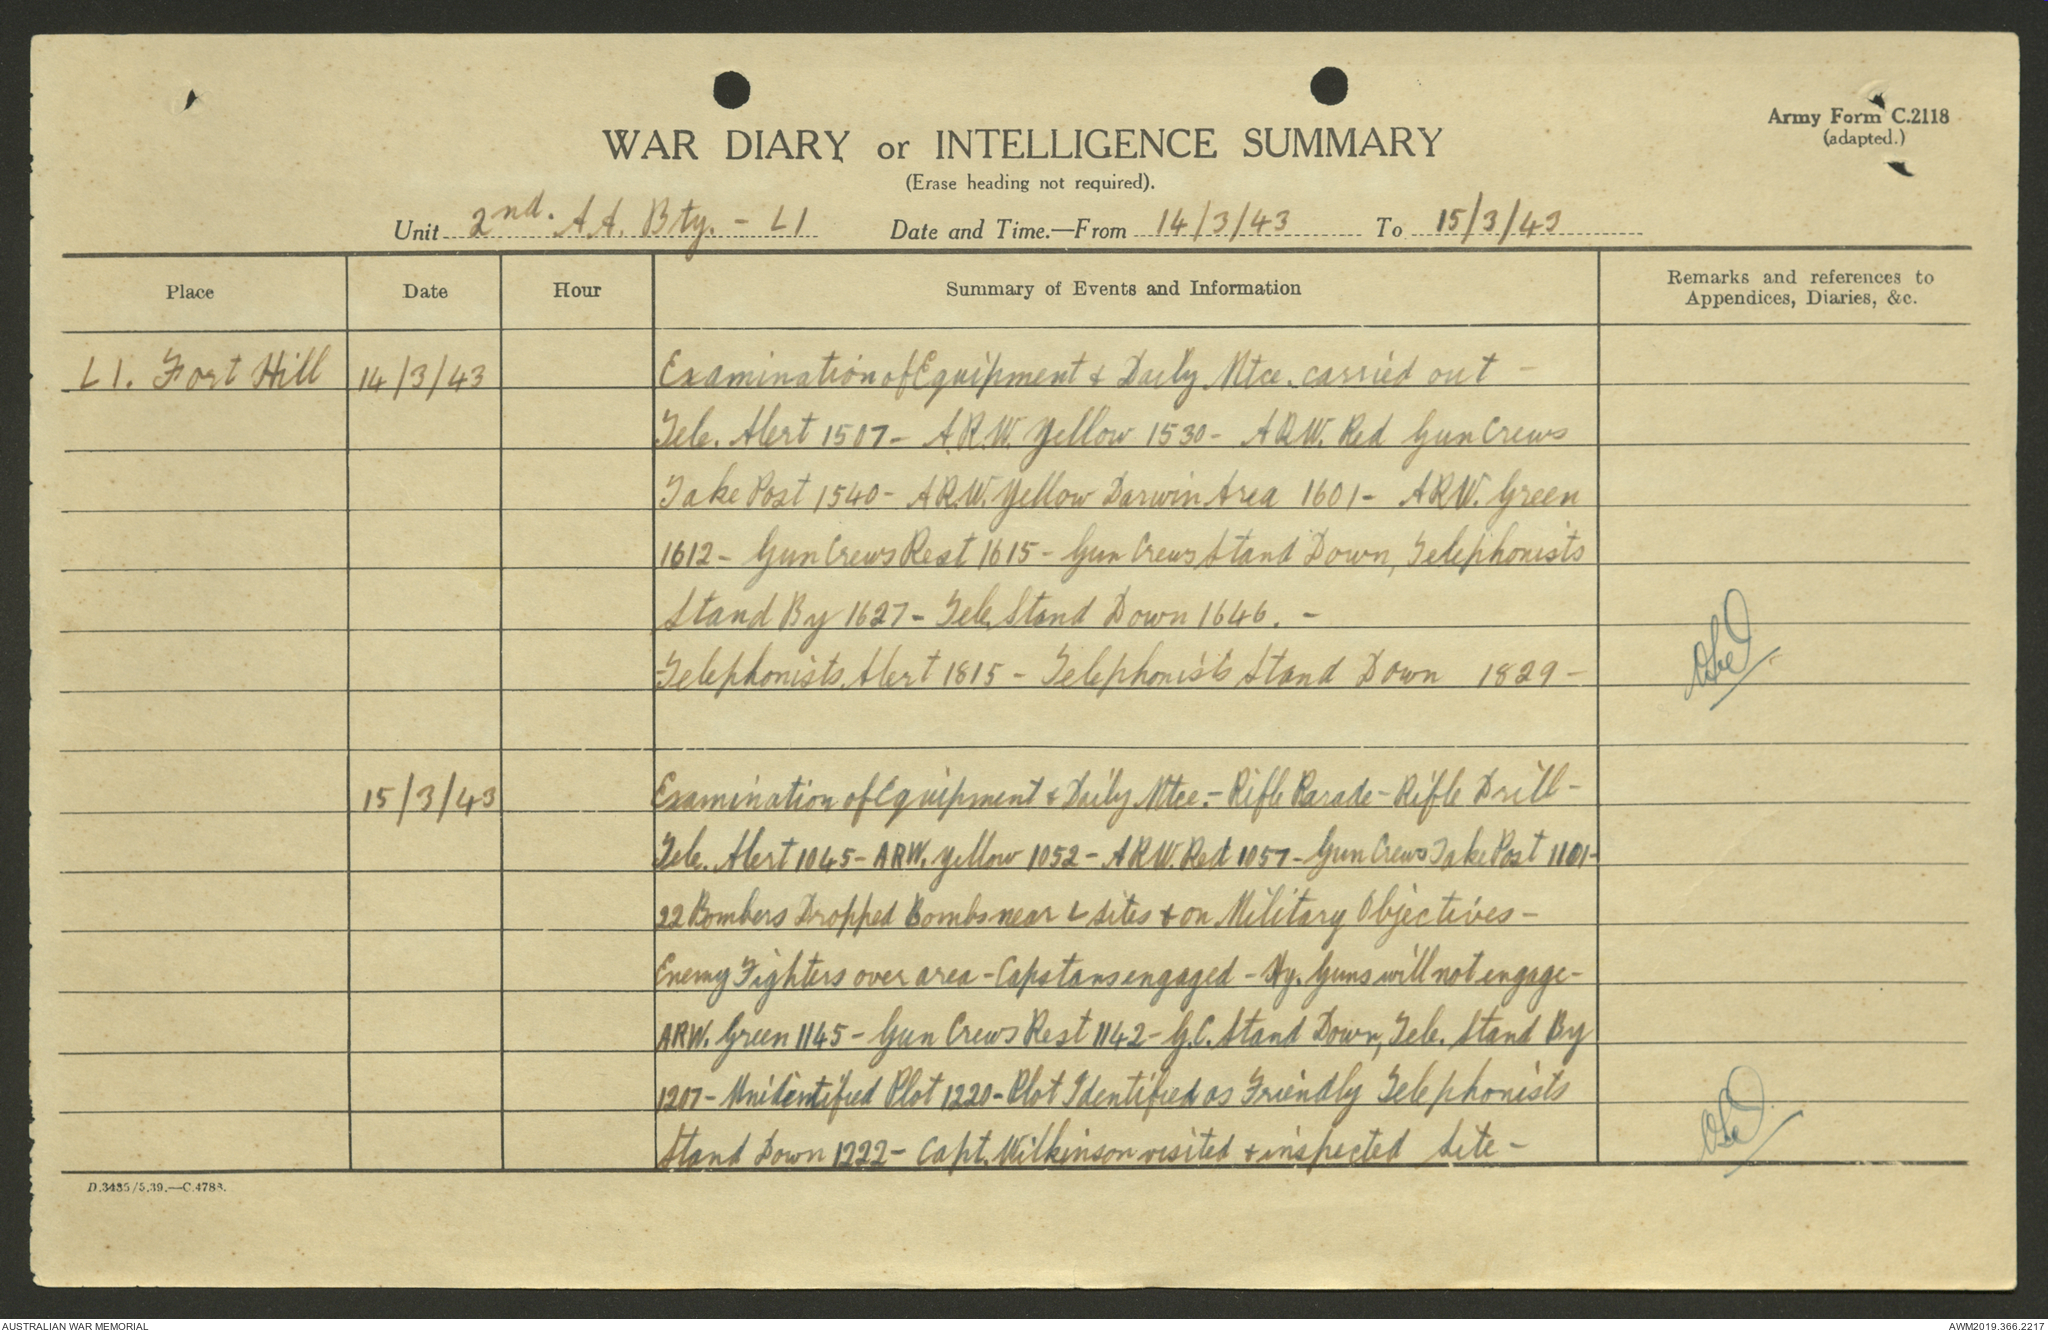 Army Form C.2118
(adapted.)
WAR DIARY or INTELLIGENCE SUMMARY
(Erase heading not required).
Unit 2nd. A.A. Bty. - L1 Date and Time.—From 14/3/43 To 15/3/43
Place Date Hour Summary of Events and Information Remarks and references to
Appendices, Diaries, &c.
L1. Fort Hill 14/3/43 Examination of Equipment & Daily Mtce. carried out -
Tele. Alert 1507 - A.R.W. Yellow 1530 - A.R.W. Red Gun Crews
Take Post 1540 - A.R.W. Yellow Darwin Area 1601 - A.R.W. Green
1612 - Gun Crews Rest 1615 - Gun Crews Stand Down, Telephonists
Stand By 1627 - Tele. Stand Down 1646. -
Telephonists Alert 1815 - Telephonists Stand Down 1829 -
15/3/43 Examination of Equipment & Daily Mtce. - Rifle Parade - Rifle Drill -
Tele. Alert 1045 - ARW. Yellow 1052 - A.R.W. Red 1057 - Gun Crews Take Post 1101 -
22 Bombers Dropped Bombs near L sites & on Military Objectives -
Enemy Fighters over area - Capstans engaged - Hy. Guns will not engage -
ARW. Green 1145 - Gun Crews Rest 1142 - G.C. Stand Down, Tele. Stand By
1207 - Unidentified Plot 1220 - Plot Identified as Friendly Telephonists
Stand Down 1222 - Capt. Wilkinson visited & inspected Site -
D.3435/5.39.—C.4788.
AUSTRALIAN WAR MEMORIAL AWM2019.366.2217